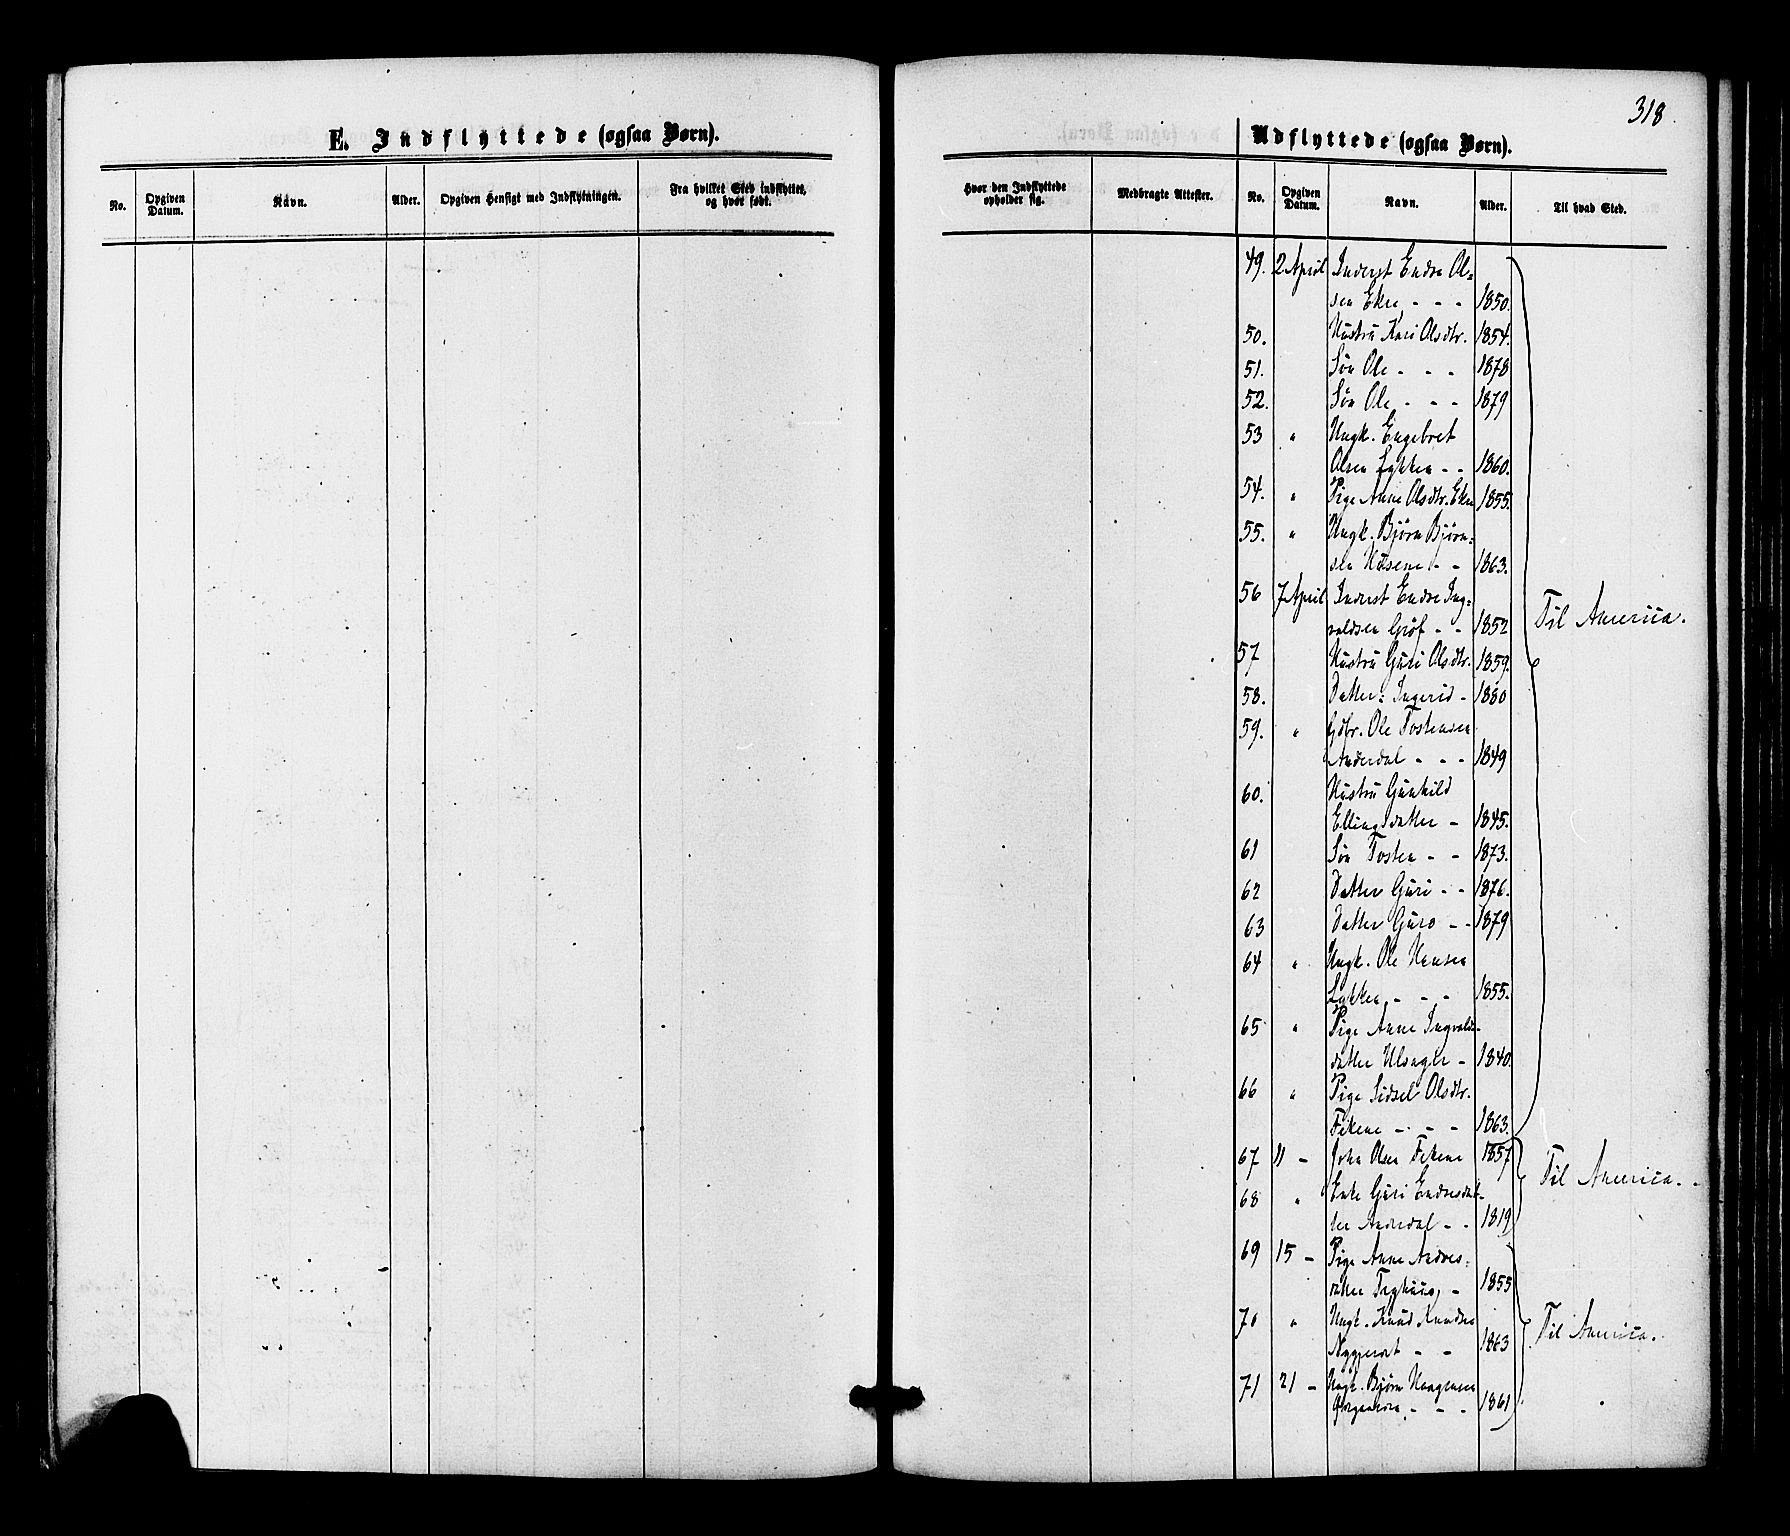 318
E. Indflyttede (ogsaa Børn).
No.
Opgiven Datum.
Navn.
Alder.
Opgiven Hensigt med Indflytningen.
Fra hvilket Sted indflyttet, og hvor født.
Udflyttede (ogsaa Børn).
Hvor den Indflyttede opholder sig.
Medbragte Attester.
No.
Opgiven Datum.
Navn.
Alder.
Til hvad Sted.
49. 2 April Inderst Endre Ol-
sen Eken - - - 1850.
50. Hustru Kari Olsdtr. 1854.
51. Søn Ole - - - 1878
52. Søn Ole - - - 1879
53 " Ungk. Engebret
Olsen Lykken - - 1860.
54. " Pige Anne Olsdtr. Eken 1855.
55. " Ungk. Bjørn Bjørn-
sen - - 1863.
56 7 April Inderst Endre Ing-
valdsen - - 1852
Til America.
57 Hustru Guri Olsdtr. 1859.
58. Datter: Ingerid - 1880
59. " Gdbr. Ole Tostensen
Anderdal - - - 1849
60. Hustru Gunhild
Ellingsdatter - 1845.
61 Søn Tosten - - 1873.
62 Datter Guri - - 1876.
63 Datter Guro - - 1879
64 " Ungk. Ole Hansen
Lykken - - - 1855.
65 " Pige Anne Ingvalds-
datter - 1840.
66 " Pige Sidsel Olsdtr.
Fekene - - - 1863.
67 11 - John Olsen Fekene 1857.
Til America. -
68 " Enke Guri Endresdat-
ter Anderdal - - 1819
69 15 - Pige Anne Andres-
datter - 1855
70 " Ungk. Knud Knudsen
- - 1863
Til America.
71 21 - Ungk. Bjørn Haagensen
- - - 1861